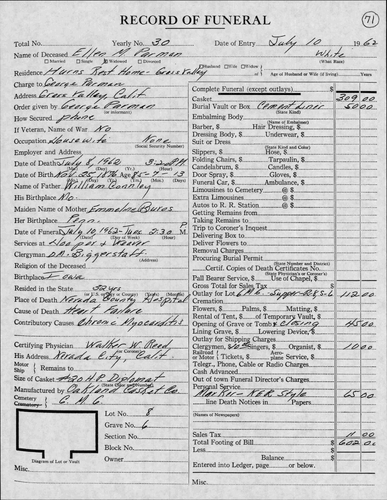 RECORD OF FUNERAL
71
Total No. Yearly No. 30 Date of Entry July 10 1962
Name of Deceased Ellen M. Parman White
Married Single Widowed Divorced Husband Wife Widow (What Race)
Residence Rest Home - Grass Valley of Age of Husband or Wife (if living)
Charge to George Parman
Address Grass Valley, Calif
Order given by George Parman
(or informant)
How Secured phone
If Veteran, Name of War No
Occupation Housewife None
Employer and Address
Date of Death July 8, 1962 3:20 P.M.
Date of Birth Nov. 25, 1876 85-7-13
Name of Father William Connley
His Birthplace No
Maiden Name of Mother Emmaline Burns
Her Birthplace Penn.
Date of Funeral July 10, 1962 - Tues. 2:30 P
Services at Hooper & Weaver
Clergyman Dr. Biggerstaff
Religion of the Deceased
Birthplace Iowa
Resided in the State 32 yrs
Place of Death Nevada County Hospital
Cause of Death Heart Failure
Contributory Causes Chronic Myocarditis
Certifying Physician Walter W. Reed
His Address Nevada City, Calif
Motor Ship Remains to
Size of Casket Diplomat
Manufactured by Oakland Casket Co.
Cemetery Crematory G.M.C.
Lot No. 8
Grave No. 6
Section No.
Block No.
Owner
Diagram of Lot or Vault
Misc.
Complete Funeral (except outlays)
Casket 309.00
Burial Vault or Box Cement Liner 50.00
(State Kind)
Embalming Body
(Name of Embalmer)
Barber, $ Hair Dressing, $
Dressing Body, $ Underwear, $
Suit or Dress
(State Kind and Color)
Slippers, $ Hose, $
Folding Chairs, $ Tarpaulin, $
Candelabrum, $ Candles, $
Door Spray, $ Gloves, $
Funeral Car, $ Ambulance, $
Limousines to Cemetery @ $
Extra Limousines @ $
Autos to R. R. Station @ $
Getting Remains from
Taking Remains to
Trip to Coroner's Inquest
Delivering Box to
Deliver Flowers to
Removal Charges
Procuring Burial Permit
(State Number and District)
Certif. Copies of Death Certificates No.
(State Physician's or Coroner's)
Pall Bearer Service, $ Use of Chapel, $
Gross Total for Sales Tax $
Outlay for Lot 112.00
Flowers, $ Palms, $ Matting, $
Rental of Tent, $ of Temporary Vault, $
Opening of Grave or Tomb & Closing 45.00
Lining Grave, $ Lowering Device, $
Outlay for Shipping Charges
Clergyman, Singers, $ Organist, $ 10.00
Railroad or Motor Tickets, $ Aeroplane Service, $
Telegr., Phone, Cable or Radio Charges
Cash Advanced
Out of town Funeral Director's Charges
Personal Service
Marker - Style 65.00
line Death Notices in Papers
(Names of Newspapers)
Sales Tax 11.00
Total Footing of Bill $ 602.00
Less $
Balance $
Entered into Ledger, page or below.
Misc.